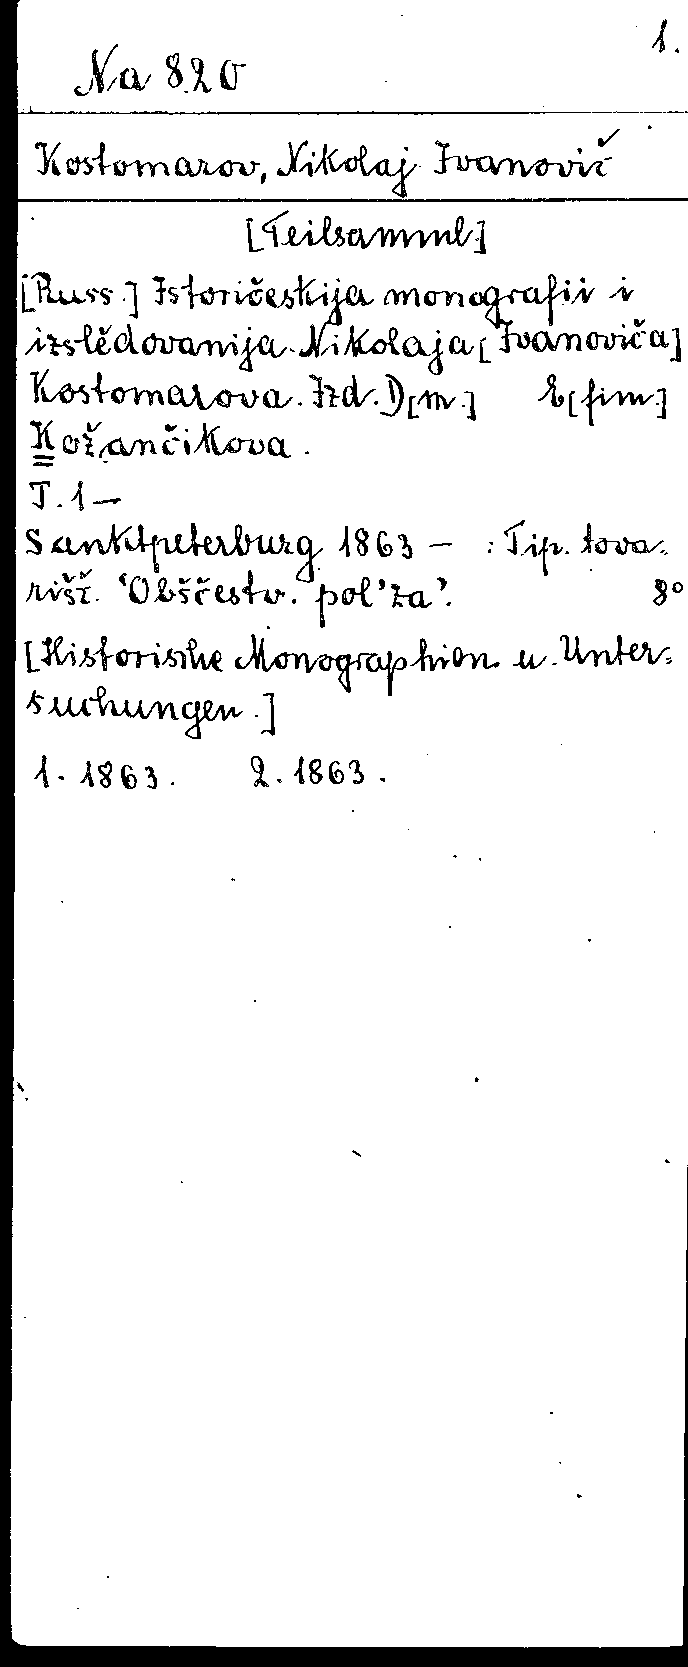 1.
Na 820
Kostomarov, Nikolaj Ivanovič
[Teilsamml.]
[Russ.] Istoričeskija monografii i
izslědovanija Nikolaja [Ivanoviča]
Kostomarova. Izd. D[m.] E[fim.]
Kožančikova.
T. 1 —
Sanktpeterburg 1863 — : Tip. tova-
rišč. 'Obščestv. pol'za'. 8°
[Historische Monographien u. Unter-
suchungen.]
1. 1863. 2. 1863.